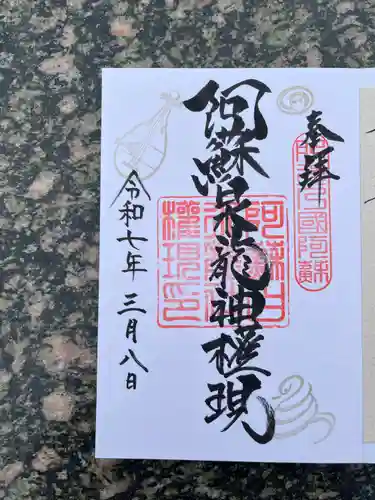 奉拜
肥後國阿蘇
阿蘇白水龍神權現
阿蘇白
水龍神
權現印
令和七年三月八日